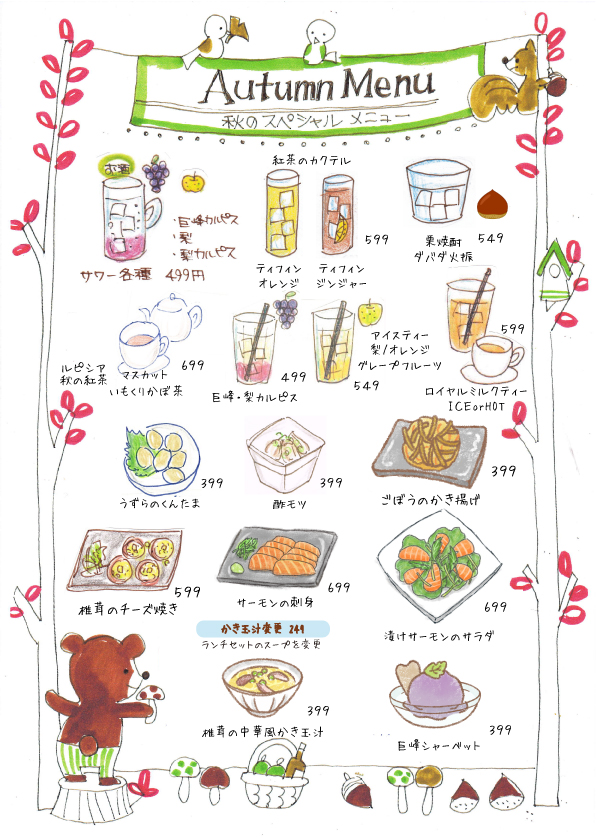 Autumn Menu
秋のスペシャル メニュー
お酒
・巨峰カルピス
・梨
・梨カルピス
サワー各種 499円
紅茶のカクテル
599
ティフィン
オレンジ
ティフィン
ジンジャー
549
栗焼酎
ダバダ火振
ルピシア
秋の紅茶
699
マスカット
いもくりかぼ茶
499
549
巨峰・梨カルピス
アイスティー
梨/オレンジ
グレープフルーツ
599
ロイヤルミルクティー
ICEorHOT
399
うずらのくんたま
399
酢モツ
399
ごぼうのかき揚げ
599
椎茸のチーズ焼き
699
サーモンの刺身
699
漬けサーモンのサラダ
かき玉汁変更 249
ランチセットのスープを変更
399
椎茸の中華風かき玉汁
399
巨峰シャーベット